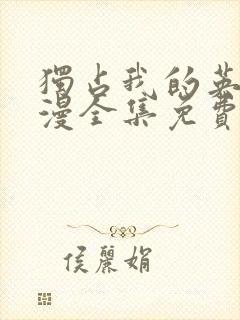 獨占我的英
漫全集免費
侯麗娟